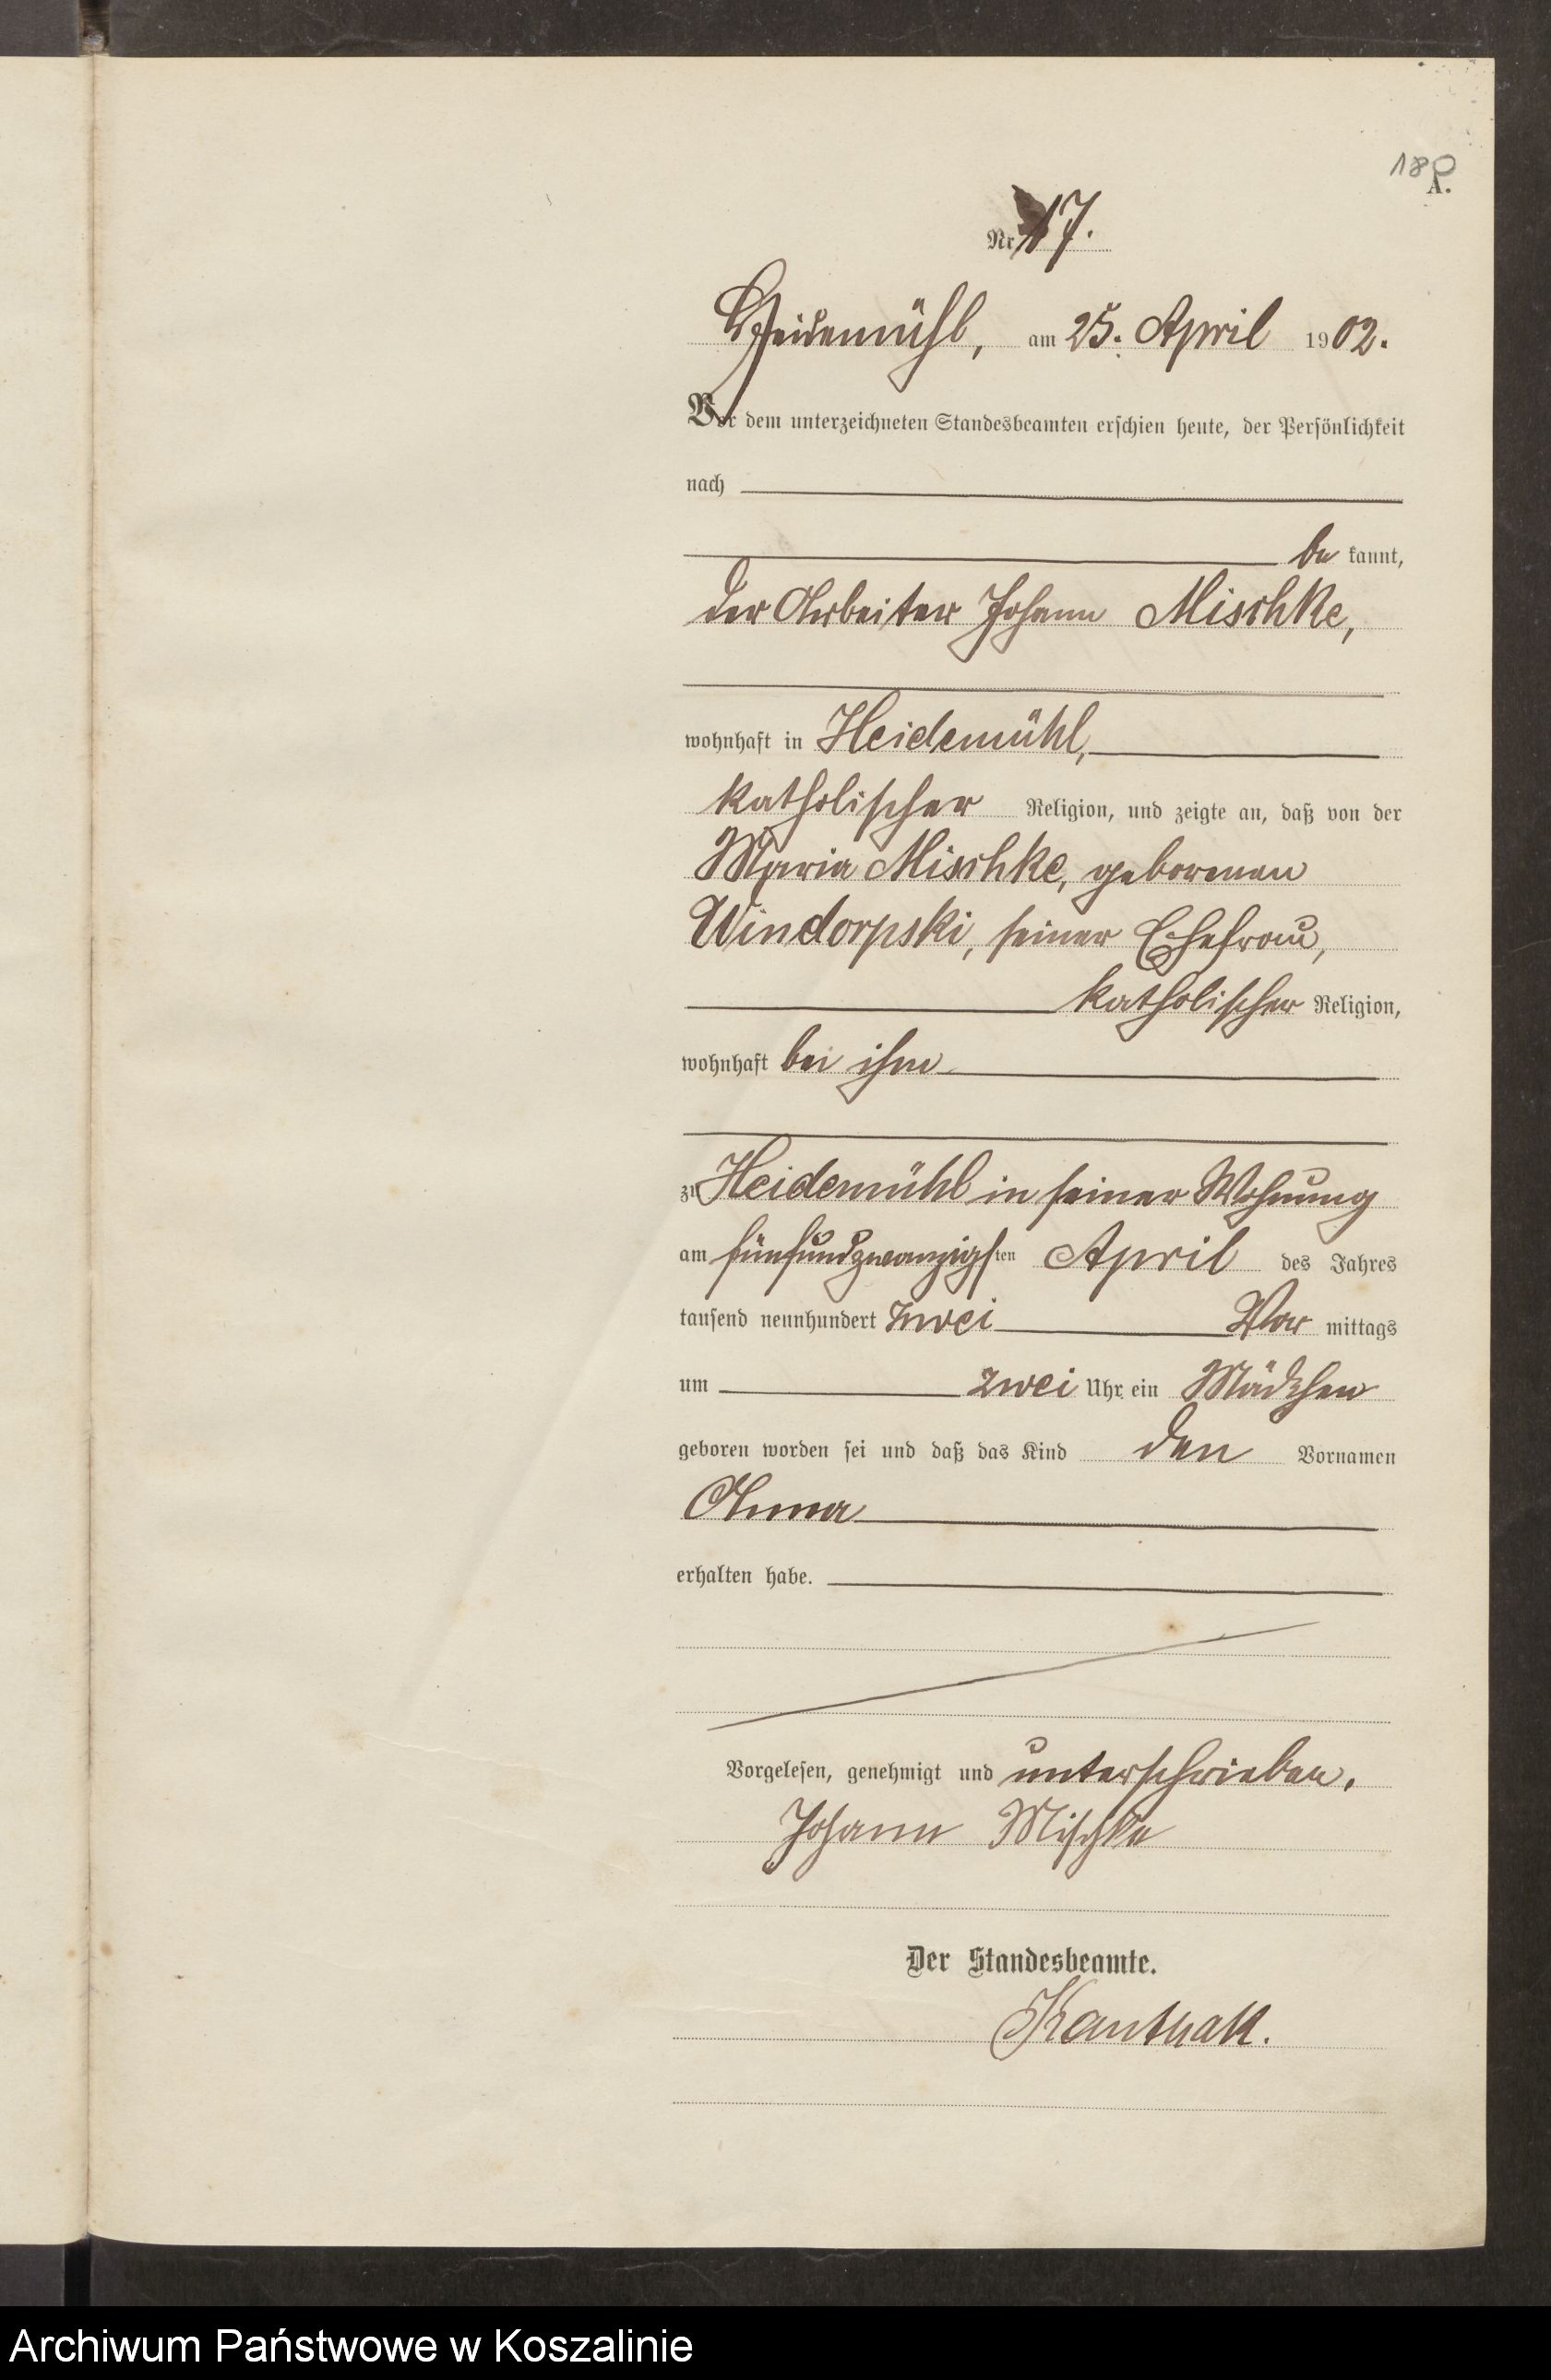 180
A.
Nr 17.
Heidemühl, am 25. April 1902.
Vor dem unterzeichneten Standesbeamten erschien heute, der Persönlichkeit
nach
be kannt,
der Arbeiter Johann Mischke,
wohnhaft in Heidemühl,
katholischer Religion, und zeigte an, daß von der
Maria Mischke, geborenen
Windorpski, seiner Ehefrau,
katholischer Religion,
wohnhaft bei ihm
zu Heidemühl in seiner Wohnung
am fünfundzwanzigsten April des Jahres
tausend neunhundert zwei Vor mittags
um zwei Uhr ein Mädchen
geboren worden sei und daß das Kind den Vornamen
Anna
erhalten habe.
Vorgelesen, genehmigt und unterschrieben.
Johann Mischke
Der Standesbeamte.
Kanthak.
Archiwum Państwowe w Koszalinie